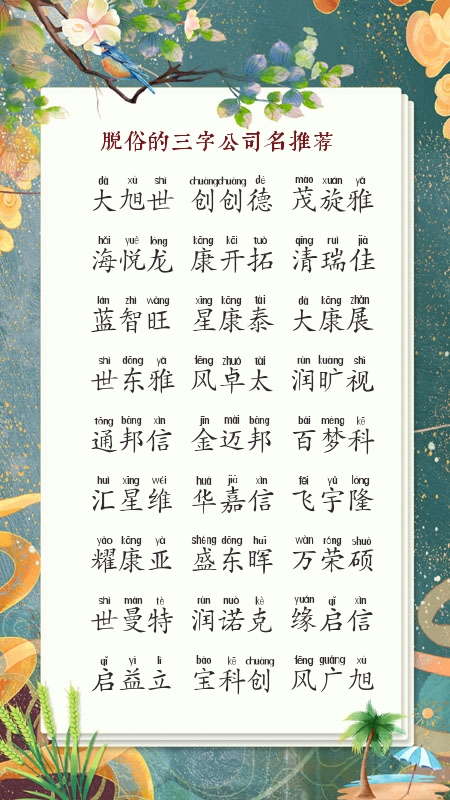 脱俗的三字公司名推荐
dà xù shì chuàngchuàng dé mào xuán yǎ
大旭世 创创德 茂旋雅
hǎi yuè lóng kāng kāi tuò qīng ruì jiā
海悦龙 康开拓 清瑞佳
lán zhì wàng xīng kāng tài dà kāng zhǎn
蓝智旺 星康泰 大康展
shì dōng yǎ fēng zhuó tài rùn kuàng shì
世东雅 风卓太 润旷视
tōng bāng xìn jīn mài bāng bǎi mèng kē
通邦信 金迈邦 百梦科
huì xīng wéi huá jiā xìn fēi yǔ lóng
汇星维 华嘉信 飞宇隆
yào kāng yà shèng dōng huī wàn róng shuò
耀康亚 盛东晖 万荣硕
shì màn tè rùn nuò kè yuán qǐ xìn
世曼特 润诺克 缘启信
qǐ yì lì bǎo kē chuàng fēng guǎng xù
启益立 宝科创 风广旭